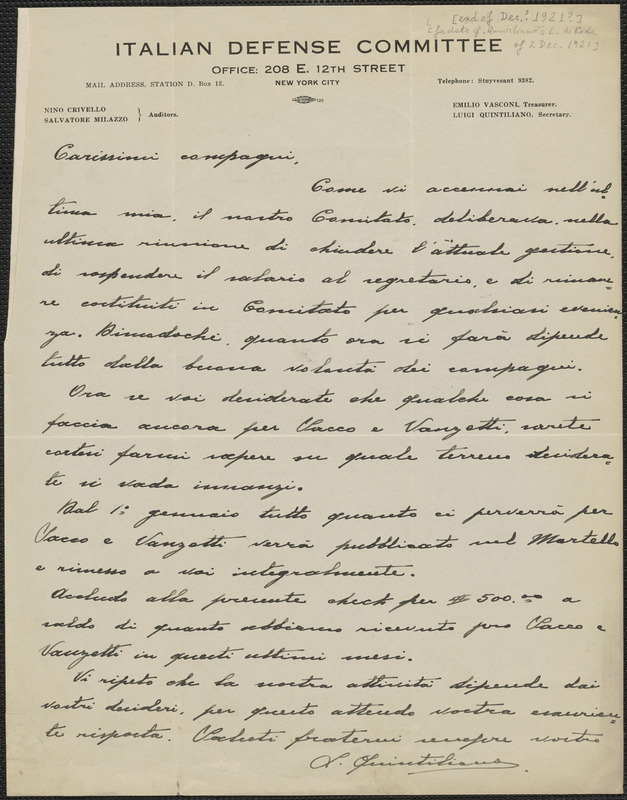 [end of Dec.? 1921?]
[cf date of Quintiliano's L. to Rode
of 2 Dec. 1921]
ITALIAN DEFENSE COMMITTEE
OFFICE: 208 E. 12TH STREET
MAIL ADDRESS, STATION D. Box 12.
NEW YORK CITY
Telephone: Stuyvesant 9382.
NINO CRIVELLO
SALVATORE MILAZZO
} Auditors.
EMILIO VASCONI, Treasurer.
LUIGI QUINTILIANO, Secretary.
Carissimi compagni,
Come vi accennai nell'ul-
tima mia, il nostro Comitato, deliberava, nella
ultima riunione di chiudere l'attuale gestione,
di sospendere il salario al segretario, e di rimane-
re costituiti in Comitato per qualsiasi evenien-
za. Dimodochè, quanto ora si farà dipende
tutto dalla buona volontà dei compagni.
Ora se voi desiderate che qualche cosa si
faccia ancora per Sacco e Vanzetti, sarete
cortesi farmi sapere su quale terreno desidera-
te si vada innanzi.
Dal 1º gennaio tutto quanto ci perverrà per
Sacco e Vanzetti verrà pubblicato nel Martello
e rimesso a voi integralmente.
Accludo alla presente check per $500.00 a
saldo di quanto abbiamo ricevuto pro Sacco e
Vanzetti in questi ultimi mesi.
Vi ripeto che la nostra attività dipende dai
vostri desideri, per questo attendo vostra esaurien-
te risposta. Saluti fraterni sempre vostro
L. Quintiliano